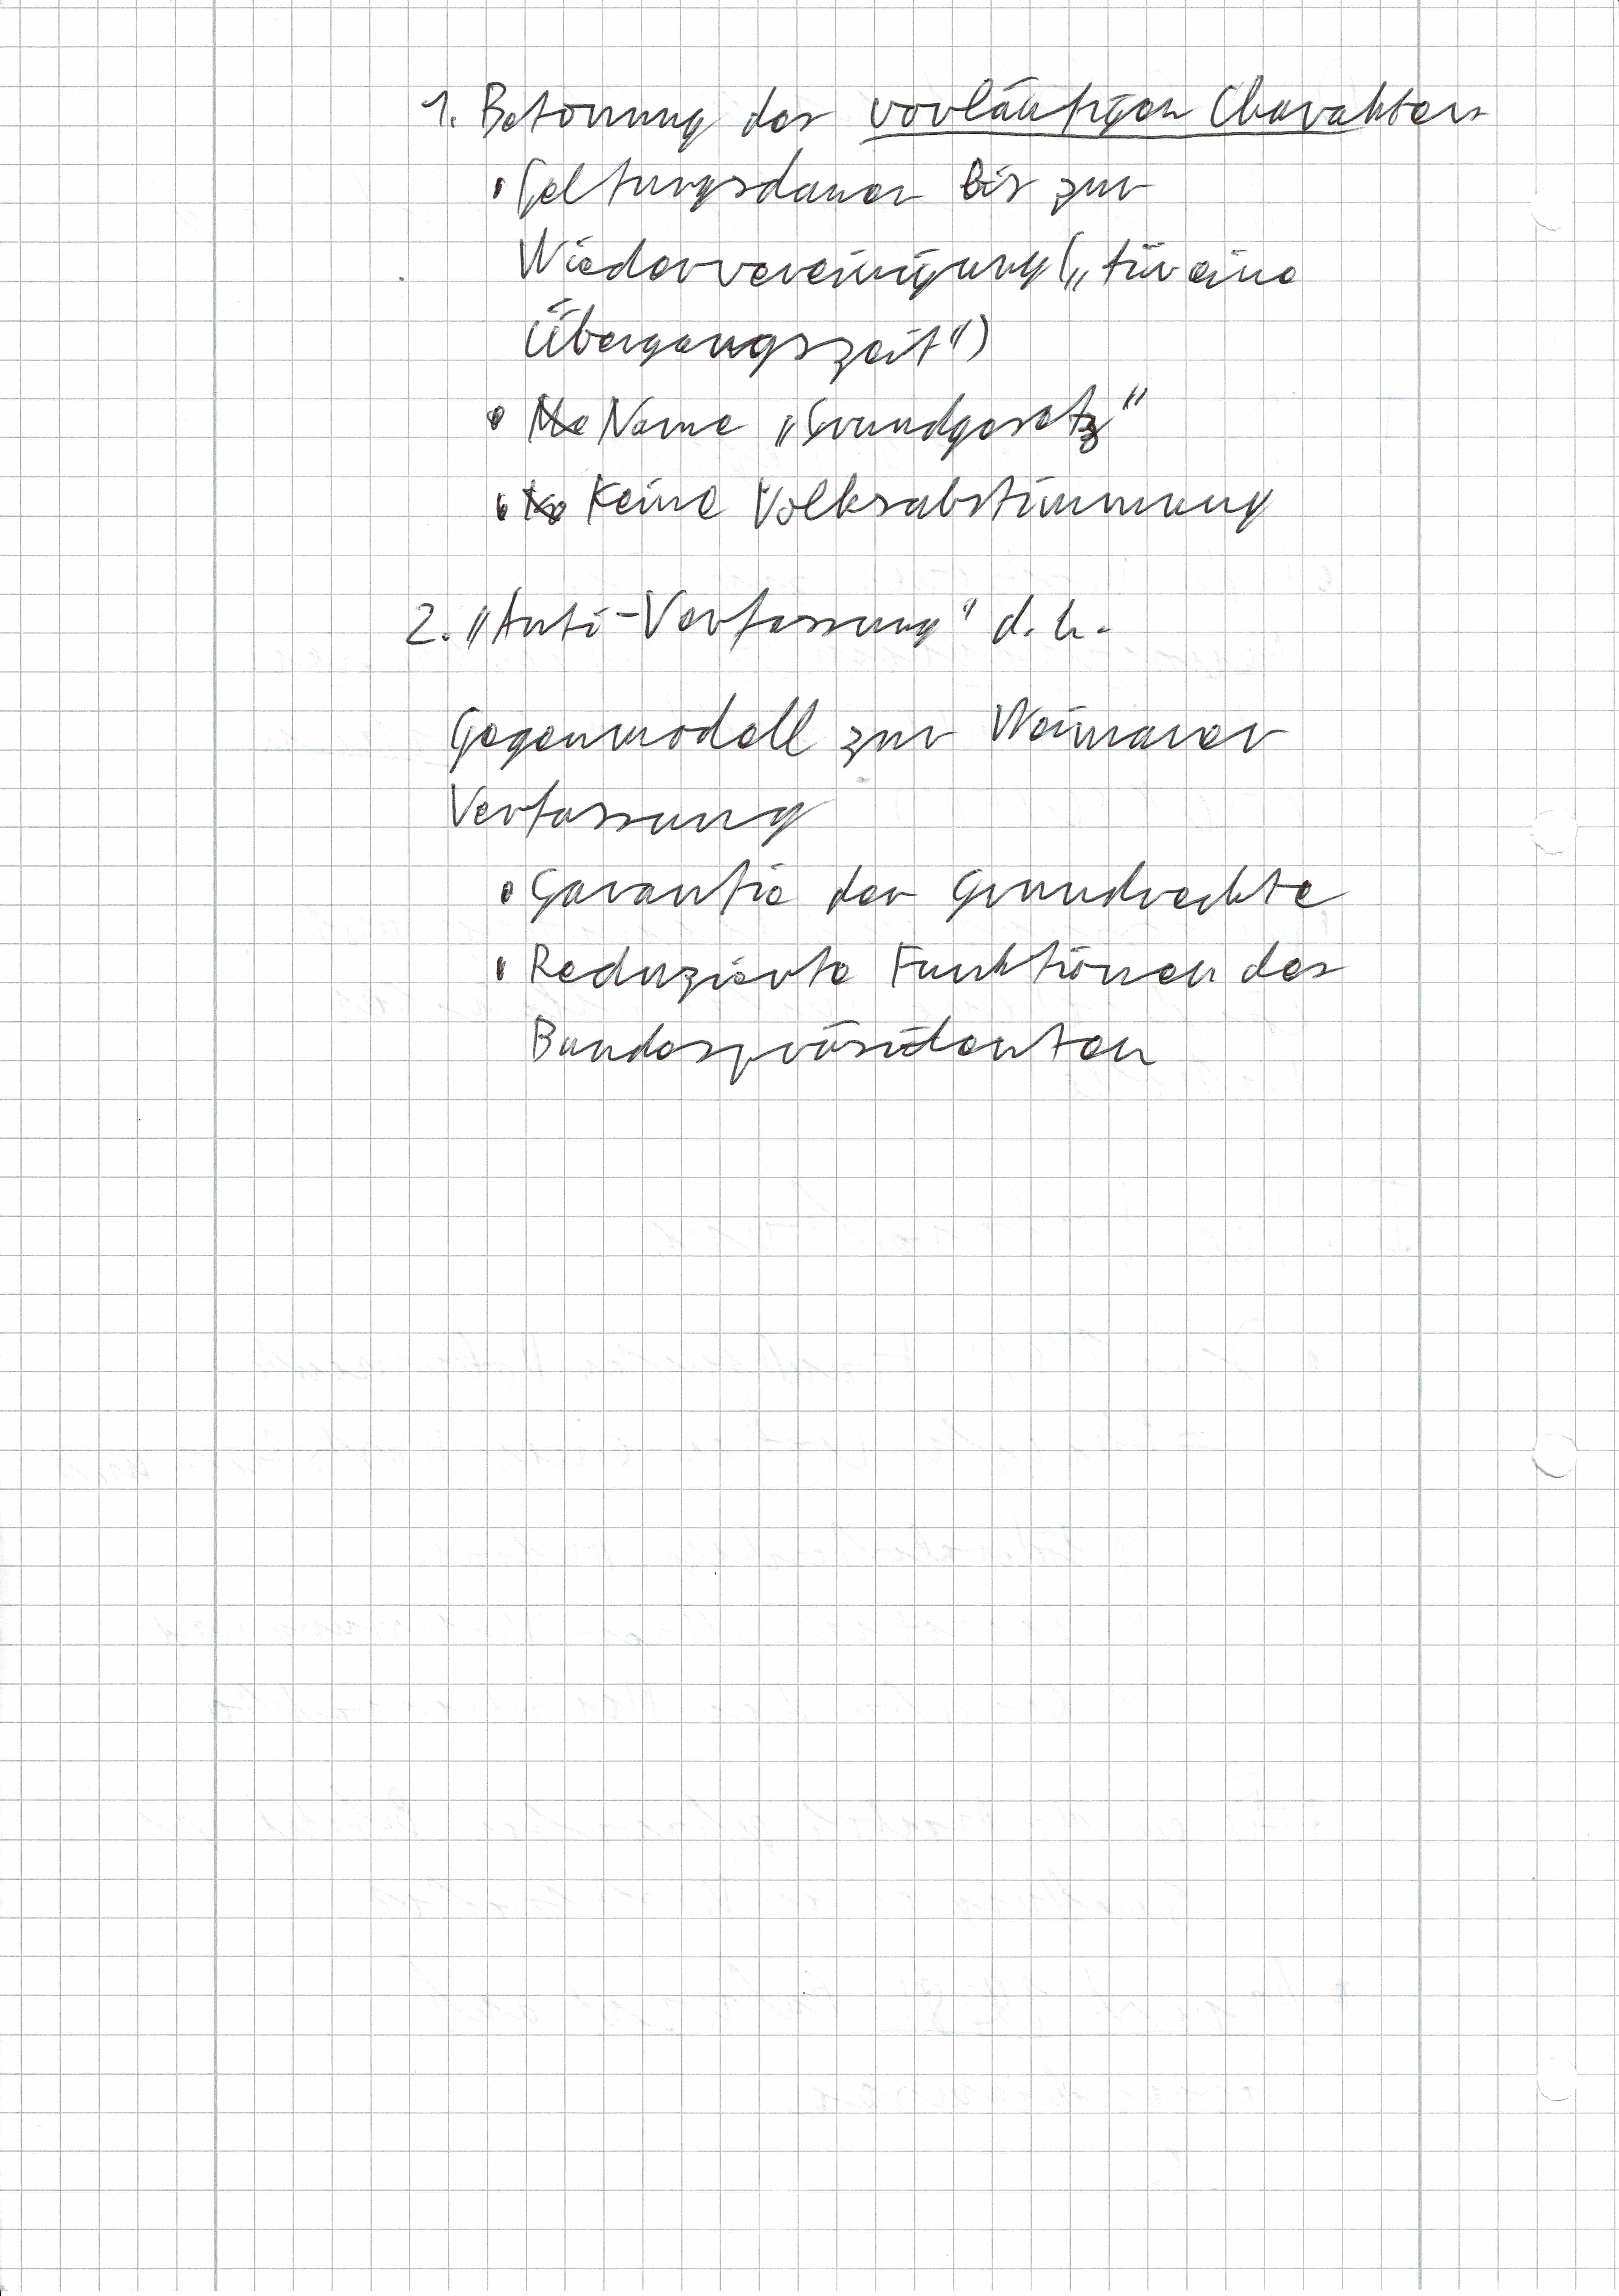 1. Betonung des vorläufigen Charakters
• Geltungsdauer bis zur
Wiedervereinigung („für eine
Übergangszeit")
• Name „Grundgesetz"
• Keine Volksabstimmung
2. „Anti-Verfassung" d.h.
Gegenmodell zur Weimarer
Verfassung
• Garantie der Grundrechte
• Reduzierte Funktionen des
Bundespräsidenten